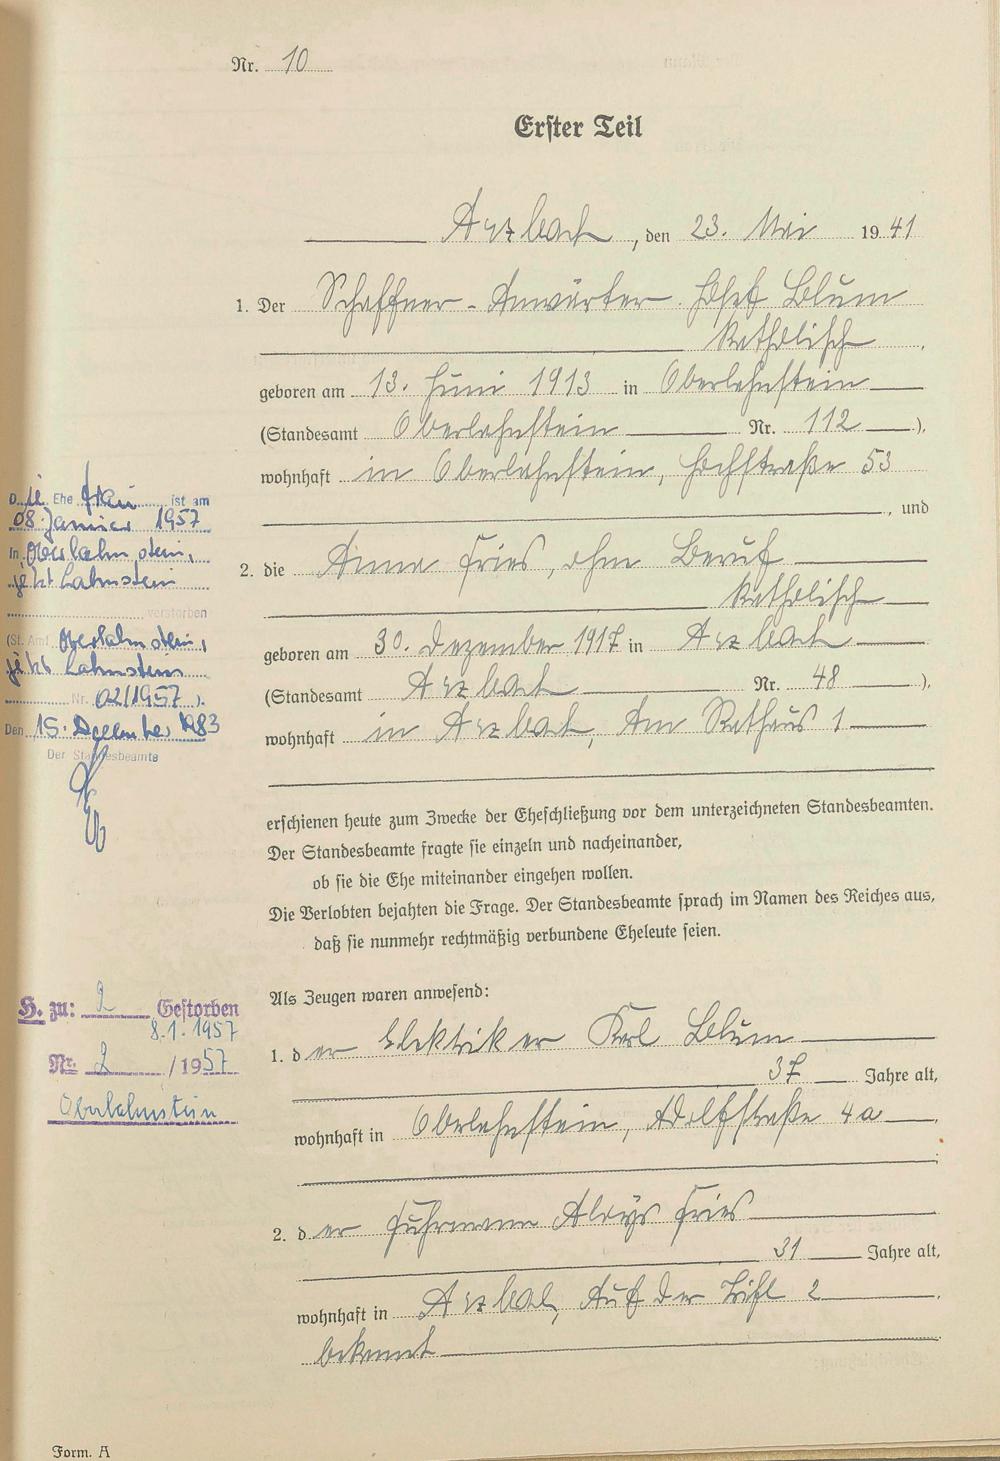 Nr. 10
Erster Teil
Arzbach, den 23. Mai 1941
1. Der Schaffner-Anwärter Josef Blum
katholisch,
geboren am 13. Juni 1913 in Oberlahnstein
(Standesamt Oberlahnstein Nr. 112),
wohnhaft in Oberlahnstein, Hochstraße 53
, und
2. die Anna Fries, ohne Beruf
katholisch
geboren am 30. Dezember 1917 in Arzbach
(Standesamt Arzbach Nr. 48),
wohnhaft in Arzbach, Am Rathaus 1
erschienen heute zum Zwecke der Eheschließung vor dem unterzeichneten Standesbeamten.
Der Standesbeamte fragte sie einzeln und nacheinander,
ob sie die Ehe miteinander eingehen wollen.
Die Verlobten bejahten die Frage. Der Standesbeamte sprach im Namen des Reiches aus,
daß sie nunmehr rechtmäßig verbundene Eheleute seien.
Als Zeugen waren anwesend:
1. der Elektriker Karl Blum
37 Jahre alt,
wohnhaft in Oberlahnstein, Adolfstraße 4a,
;
2. der Fuhrmann Aloys Fries
31 Jahre alt,
wohnhaft in Arzbach, Auf der 2.
bekannt
Die Ehefrau ist am
08. Januar 1957
in Oberlahnstein,
jetzt Lahnstein
verstorben
(St. Amt Oberlahnstein,
jetzt Lahnstein
Nr. 02/1957).
Den 15. Dezember 1983
Der Standesbeamte
H. zu: 2 Gestorben
8.1.1957
Nr. 2 /1957
Oberlahnstein
Form. A